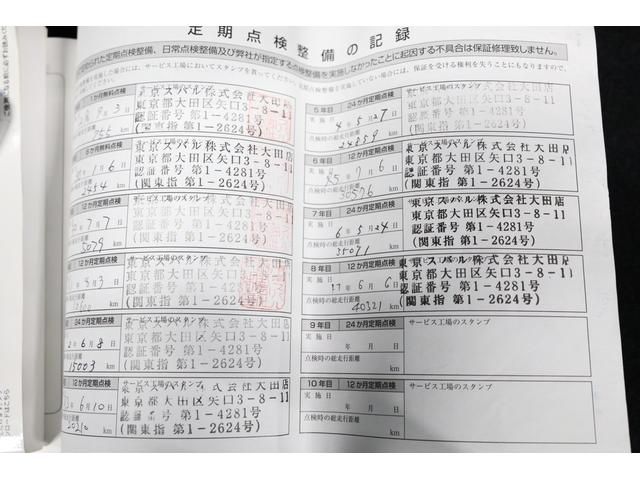 定期点検整備の記録
られた定期点検整備、日常点検整備及び弊社が指定する点検整備を実施しなかったことに起因する不具合は保証修理致しません。
1か月無料点検
サービス工場のスタンプ
東京スバル株式会社大田店
東京都大田区矢口3-8-11
認証番号 第1-4281号
(関東指 第1-2624号)
月 3 日
km
か月無料点検
東京スバル株式会社大田店
東京都大田区矢口3-8-11
認証番号 第1-4281号
(関東指 第1-2624号)
1月 6日
2454 km
12か月定期点検
サービス工場のスタンプ
東京スバル株式会社大田店
東京都大田区矢口3-8-11
認証番号 第1-4281号
(関東指 第1-2624号)
年7月7日
5079 km
東京スバル株式会社大田店
東京都大田区矢口3-8-11
認証番号 第1-4281号
(関東指 第1-2624号)
月3日
km
24か月定期点検
サービス工場のスタンプ
東京スバル株式会社大田店
東京都大田区矢口3-8-11
認証番号 第1-4281号
(関東指 第1-2624号)
2年6月8日
15003 km
12か月定期点検
サービス工場のスタンプ
東京スバル株式会社大田店
東京都大田区矢口3-8-11
認証番号 第1-4281号
(関東指 第1-2624号)
年6月10日
20210 km
5年目 24か月定期点検
サービス工場のスタンプ
東京スバル株式会社大田店
東京都大田区矢口3-8-11
認証番号 第1-4281号
(関東指 第1-2624号)
実施日
4年5月27日
点検時の総走行距離
24859 km
6年目 12か月定期点検
東京スバル株式会社大田店
東京都大田区矢口3-8-11
認証番号 第1-4281号
(関東指 第1-2624号)
実施日
年7月6日
点検時の総走行距離
30576 km
7年目 24か月定期点検
東京スバル株式会社大田店
東京都大田区矢口3-8-11
認証番号 第1-4281号
(関東指 第1-2624号)
実施日
6年5月24日
点検時の総走行距離
35071 km
8年目 12か月定期点検
東京スバル株式会社大田店
東京都大田区矢口3-8-11
認証番号 第1-4281号
(関東指 第1-2624号)
実施日
年6月6日
点検時の総走行距離
40321 km
9年目 24か月定期点検
サービス工場のスタンプ
実施日
年 月 日
点検時の総走行距離
km
10年目 12か月定期点検
サービス工場のスタンプ
実施日
年 月 日
点検時の総走行距離
km